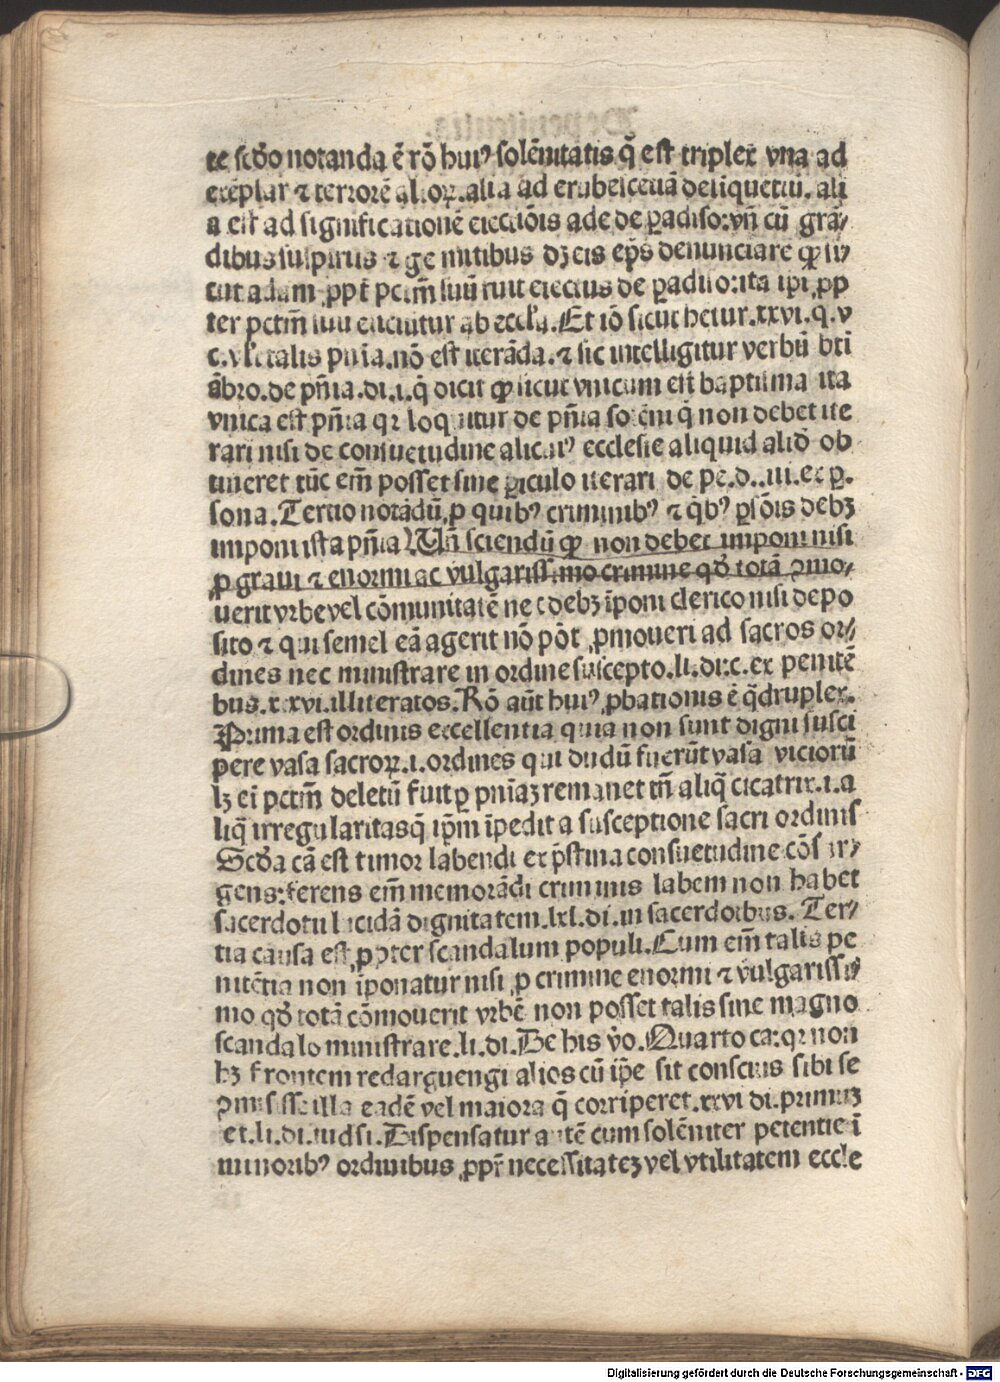 te scďo notanda ē rō hui⁹ solēnitatis q̄ est triplex vna ad
exēplar ⁊ terrorē alioꝝ. alia ad erubescentiā deliquētiū. ali
a est ad significationē eiectiōis ade de ꝑadiso: vñ cū grā⸗
dibus suspiriis ⁊ gemitibus dꝫ eis ep̄s denunciare ꝙ si⸗
cut adam ꝓpt̄ pctm̄ suū fuit eiectus de ꝑadiso: ita ip̄i ꝓp
ter pctm̄ suū eiiciūtur ab eccl̄ia. Et iō sicut hetur. xxvi. q. v
c. vl̄t talis pn̄ia. nō est iterāda. ⁊ sic intelligitur verbū bt̄i
ābro. de pn̄ia. di. i. q̄ dicit ꝙ sicut vnicum est baptisma ita
vnica est pn̄ia qꝛ loquitur de pn̄ia solēni q̄ non debet ite
rari nisi de consuetudine alicui⁹ ecclesie aliquid aliď ob
tineret tūc em̄ posset sine ꝑiculo iterari de pe. d. iii. ex ꝑ.
sona. Tertio notādū, ꝓ quib⁹ criminib⁹ ⁊ qꝰb⁹ ꝑsōis debꝫ
imponi ista pn̄ia Uñ sciendū ꝙ non debet imponi nisi
ꝓ graui ⁊ enormi ac vulgarissimo crimine qď totā ꝯmo⸗
uerit vrbe vel cōmunitatē nec debꝫ īponi clerico nisi depo
sito ⁊ qui semel eā agerit nō pōt ꝓmoueri ad sacros or⸗
dines nec ministrare in ordine suscepto. li. di: c. ex penitē
bus. xxxvi. illiteratos. Rō aūt hui⁹ ꝓbationis ē q̄druplex.
Prima est ordinis excellentia quia non sunt digni susci
pere vasa sacroꝝ. i. ordines qui dudū fuerūt vasa viciorū
lꝫ em̄ pctm̄ deletū fuit ꝑ pn̄iaꝫ remanet tn̄ aliq̄ cicatrix. i. a
liq̄ irregularitas q̄ ip̄m īpedit a susceptione sacri ordinis
Scďa cā est timor labendi ex p̄stina consuetudine cōsur⸗
gens: ferens em̄ memorādi criminis labem non habet
sacerdotii lucidā dignitatem. lxi. di. in sacerdotibus. Ter⸗
tia causa est ꝓpter scandalum populi. Cum em̄ talis pe
nitētia non īponatur nisi ꝓ crimine enormi ⁊ vulgarissi⸗
mo qď totā cōmouerit vrbē non posset talis sine magno
scandalo ministrare. li. di. De his ṽo. Quarto ca: qꝛ non
hꝫ frontem redarguengi alios cū ip̄e sit conscius sibi se
ꝯmisisse illa eadē vel maiora q̄ corriperet. xxvi di. primuꝫ
et. li. di. iudsi. Dispensatur autē cum solēniter petentie ī
minorib⁹ ordinibus ꝓpt̄ necessitateꝫ vel vtilitatem eccle
Digitalisierung gefördert durch die Deutsche Forschungsgemeinschaft - DFG